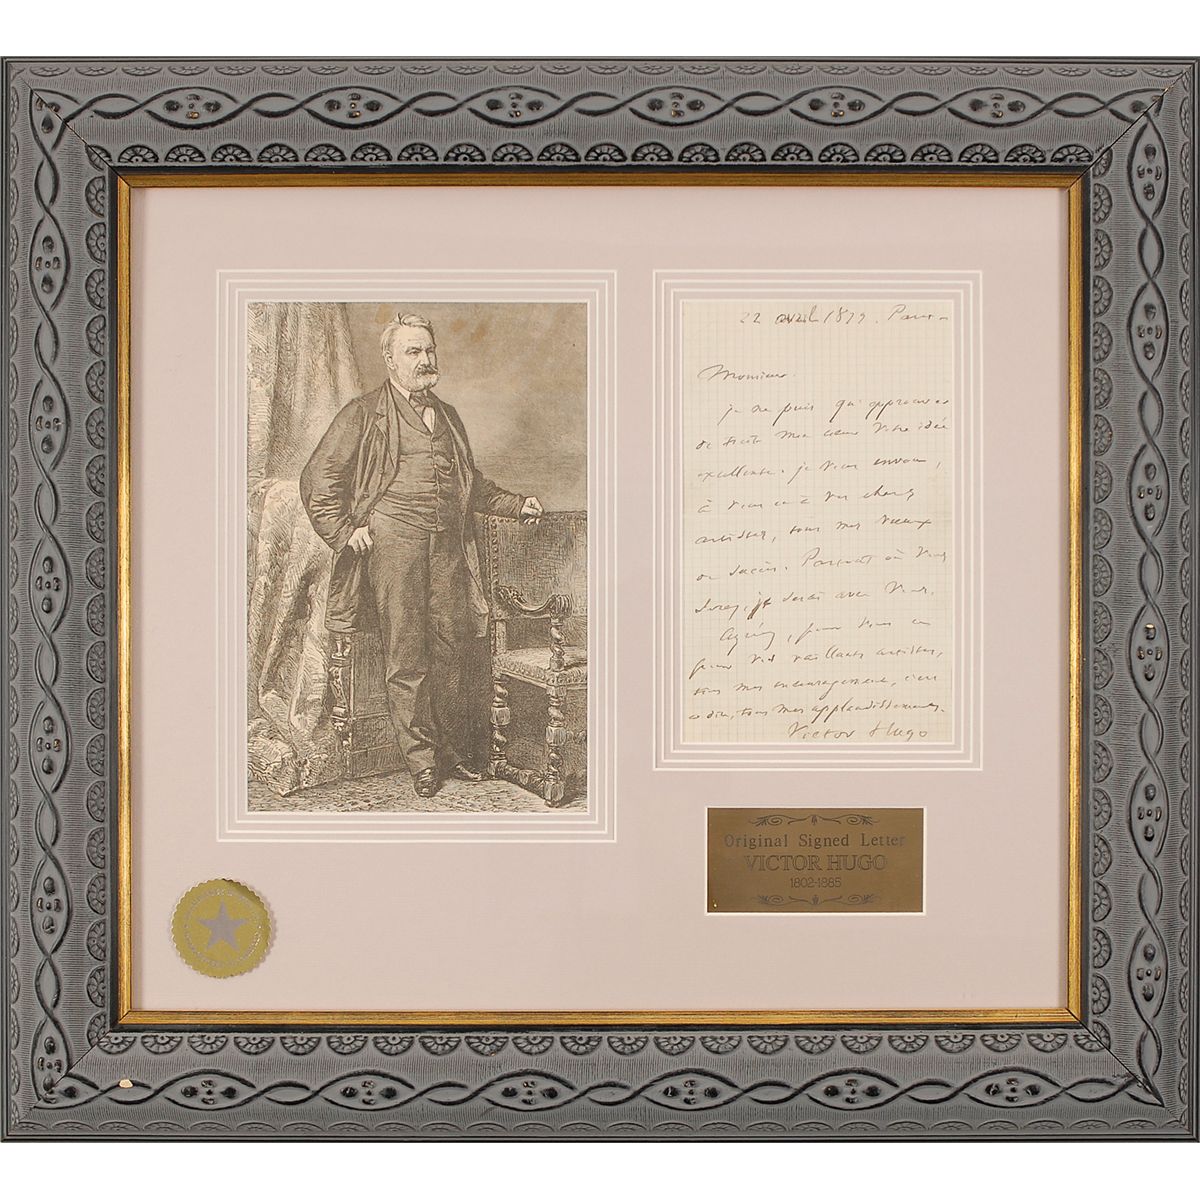 22 avril 1879. Paris
Monsieur.
je ne puis qu'approuver
de toute mon cœur votre idée
excellente. je vous envoie,
à vous et à vos chers
artistes, tous mes vœux
de succès. Partout où vous
serez, je serai avec vous.
Agréez, pour vous et
pour vos vaillants artistes,
tous mes encouragements, c'est
à dire, tous mes applaudissements.
Victor Hugo
Original Signed Letter
VICTOR HUGO
1802-1885